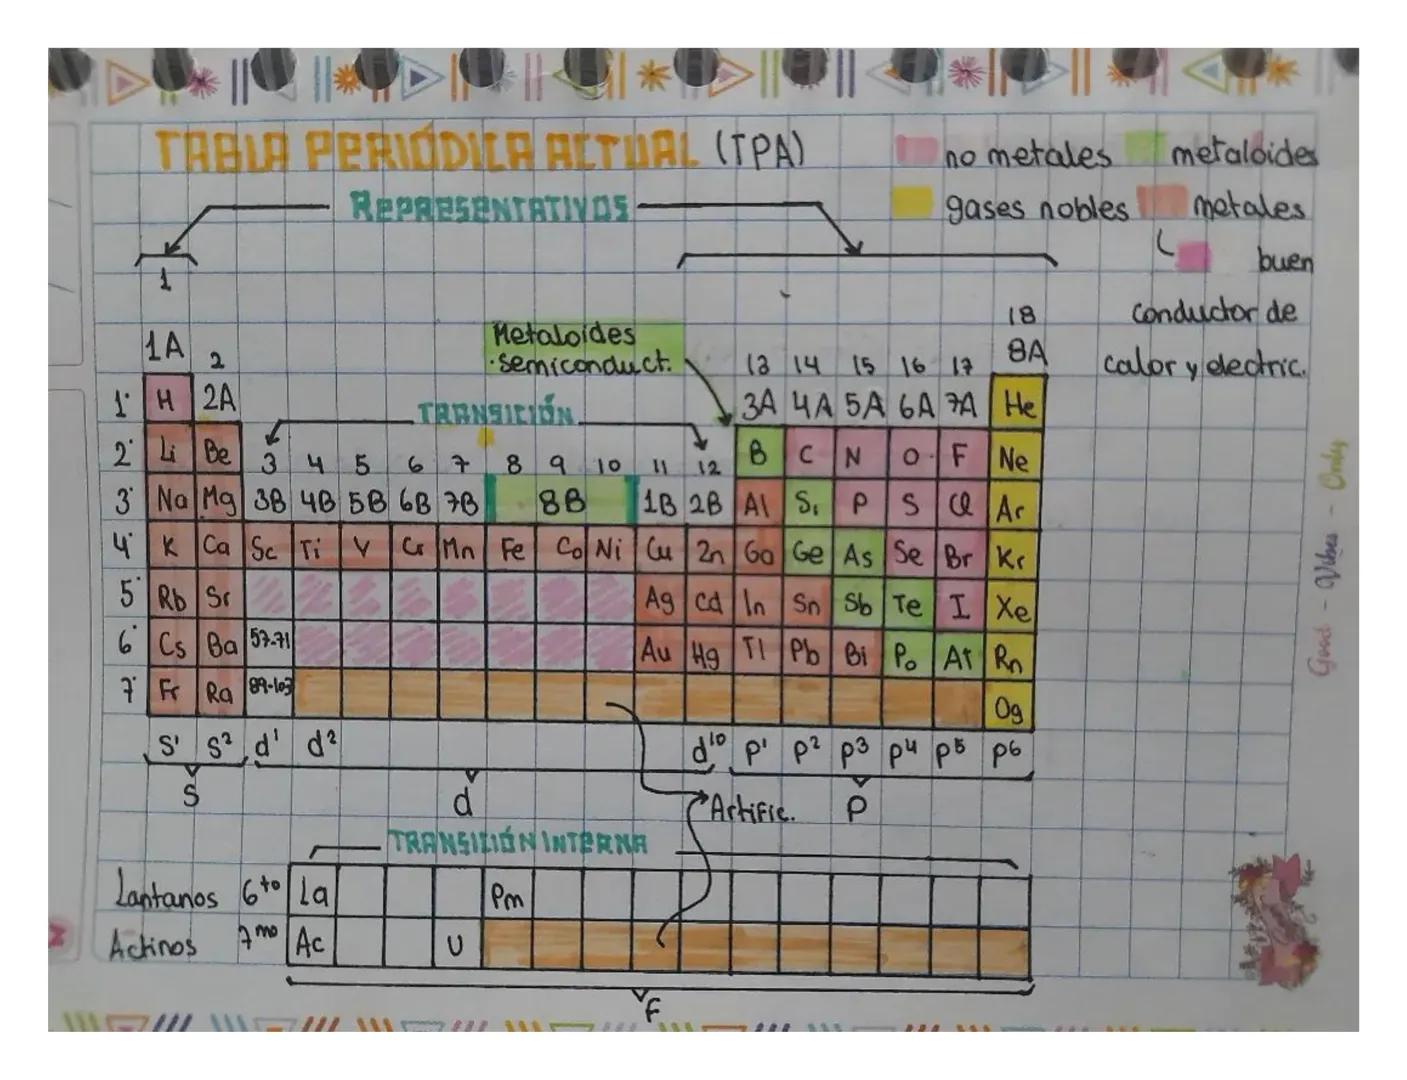 TABLA PERIÓDICA ACTUAL (TPA)
no metales
metaloides
REPRESENTATIVOS
gases nobles
metales
1
buen
conductor de
calor y electric.
18
1A
2
Metaloides
·semiconduct.
13 14 15 16 17
8A
1° H 2A
TRANSICIÓN
3A 4A 5A 6A 7A He
2° Li Be 3 4 5 6 7 8 9 10 11 12 B C N O F Ne
3° Na Mg 3B 4B 5B 6B 7B 8B 1B 2B Al Si P S Cl Ar
4° K Ca Sc Ti V Cr Mn Fe Co Ni Cu Zn Ga Ge As Se Br Kr
5° Rb Sr Ag Cd In Sn Sb Te I Xe
6° Cs Ba 57-71 Au Hg Tl Pb Bi Po At Rn
7° Fr Ra 89-103 Og
S¹ S² d¹ d² d¹⁰ p¹ p² p³ p⁴ p⁵ p⁶
S d p
Artific.
TRANSICIÓN INTERNA
Lantanos 6to La Pm
Actinos 7mo Ac U
f
Good - Vibes - Only